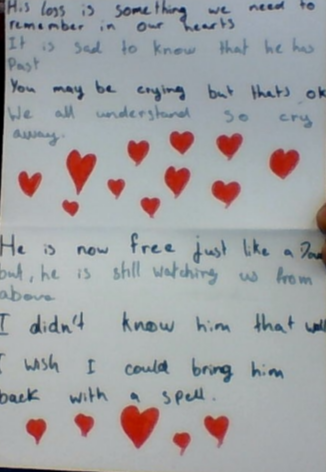 His loss is something we need to
remember in our hearts
It is sad to know that he has
Past
You may be crying but thats ok
We all understand so cry
away.
He is now free just like a
but, he is still watching us from
above
I didn't know him that well
I wish I could bring him
back with a spell.